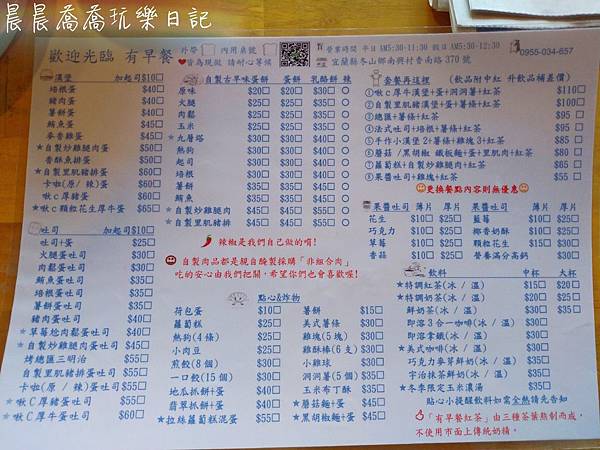 晨晨喬喬玩樂日記
歡迎光臨 有早餐
外帶□ 內用桌號
皆為現做 請耐心等候
營業時間 平日AM5:30-11:30 假日AM5:30-12:30
宜蘭縣冬山鄉南興村香南路370號
0955-034-657
漢堡 加起司$10□
培根蛋 $40□
豬肉蛋
薯餅蛋
鮪魚蛋
麥香雞蛋 $45□
★自製炒雞腿肉蛋 $50□
香酥魚排蛋 $50□
★自製里肌豬排蛋 $60□
卡啦(原/辣)蛋 $60□
啾c厚豬蛋 $60□
★啾c顆粒花生厚牛蛋 $65□
吐司 加起司$10□
吐司+蛋 $25□
火腿蛋吐司 $30□
肉鬆蛋吐司 $30□
鮪魚蛋吐司 $35□
培根蛋吐司 $35□
薯餅蛋吐司 $35□
豬肉蛋吐司 $35□
★草莓炝肉鬆蛋吐司 $40□
★自製炒雞腿肉蛋吐司 $45□
烤總匯三明治 $55□
自製里肌豬排蛋吐司 $55□
卡啦(原/辣)蛋吐司 $55□
★啾C厚豬蛋吐司 $55□
★啾C厚牛蛋吐司 $60□
自製古早味蛋餅 蛋餅 乳酪餅 辣
原味 $20□ $30□ ○
火腿 $25□ $35□ ○
肉鬆 $25□ $35□ ○
玉米 $25□ $35□ ○
★九層塔 $30□ $40□ ○
熱狗 $30□ $40□ ○
起司 $30□ $40□ ○
培根 $35□ $45□ ○
薯餅 $35□ $45□ ○
鮪魚 $35□ $45□ ○
★自製炒雞腿肉 $45□ $55□ ○
★自製里肌豬排 $45□ $55□ ○
辣椒是我們自己做的唷!
自製肉品都是親自醃製採購「非組合肉」
吃的安心由我們把關,希望你們也會喜歡喔!
點心&炸物
荷包蛋 $10□
蘿蔔糕 $25□
熱狗(4支) $30□
小肉豆 $25□
煎餃(8個) $30□
一口餃(15個) $30□
地瓜抓餅+蛋 $30□
翡翠抓餅+蛋 $30□
★拉絲蘿蔔糕混蛋 $55□
薯餅 $15□
美式薯條 $30□
雞塊(5塊) $30□
雞酥棒(6支) $30□
小雞球 $35□
洞洞薯(5個) $35□
玉米布丁酥 $35□
★蘑菇麵+蛋 $45□
★黑胡椒麵+蛋 $45□
套餐再這裡 (飲品附中紅 升飲品補差價)
①啾c厚牛漢堡+蛋+洞洞薯+紅茶 $110□
②自製里肌豬漢堡+蛋+薯條+紅茶 $100□
③總匯+薯條+紅茶 $95□
④法式吐司+培根+薯條+紅茶 $95□
⑤手作小漢堡2+薯條+雞塊3+紅茶 $85□
⑥蘑菇/黑胡椒 鐵板麵+蛋+里肌肉+紅茶 $80□
⑦蘿蔔糕+自製炒雞腿肉+紅茶 $65□
⑧果醬吐司+雞塊+紅茶 $55□
更換餐點內容則無優惠
果醬吐司 薄片 厚片
花生 $15□ $25□
巧克力 $15□ $25□
草莓 $15□ $25□
香蒜 $20□ $30□
果醬吐司 薄片 厚片
藍莓 $20□ $30□
椰香奶酥 $20□ $30□
顆粒花生 $15□ $30□
營養滿分高鈣 $30□
飲料 中杯 大杯
★特調紅茶(冰/溫) $15□ $20□
★特調奶茶(冰/溫) $20□ $25□
鮮奶茶(冰/溫) $35□
即溶3合一咖啡(冰/溫) $35□
即溶拿鐵(冰/溫) $40□
★美式咖啡(冰/溫) $30□
巧克力麥芽鮮奶(冰/溫) $35□
宇治抹茶鮮奶(冰/溫) $35□
★冬季限定玉米濃湯 $35□
貼心小提醒飲料如需全熱請先告知
「有早餐紅茶」由三種茶葉熬制而成,
不使用市面上傳統奶精。